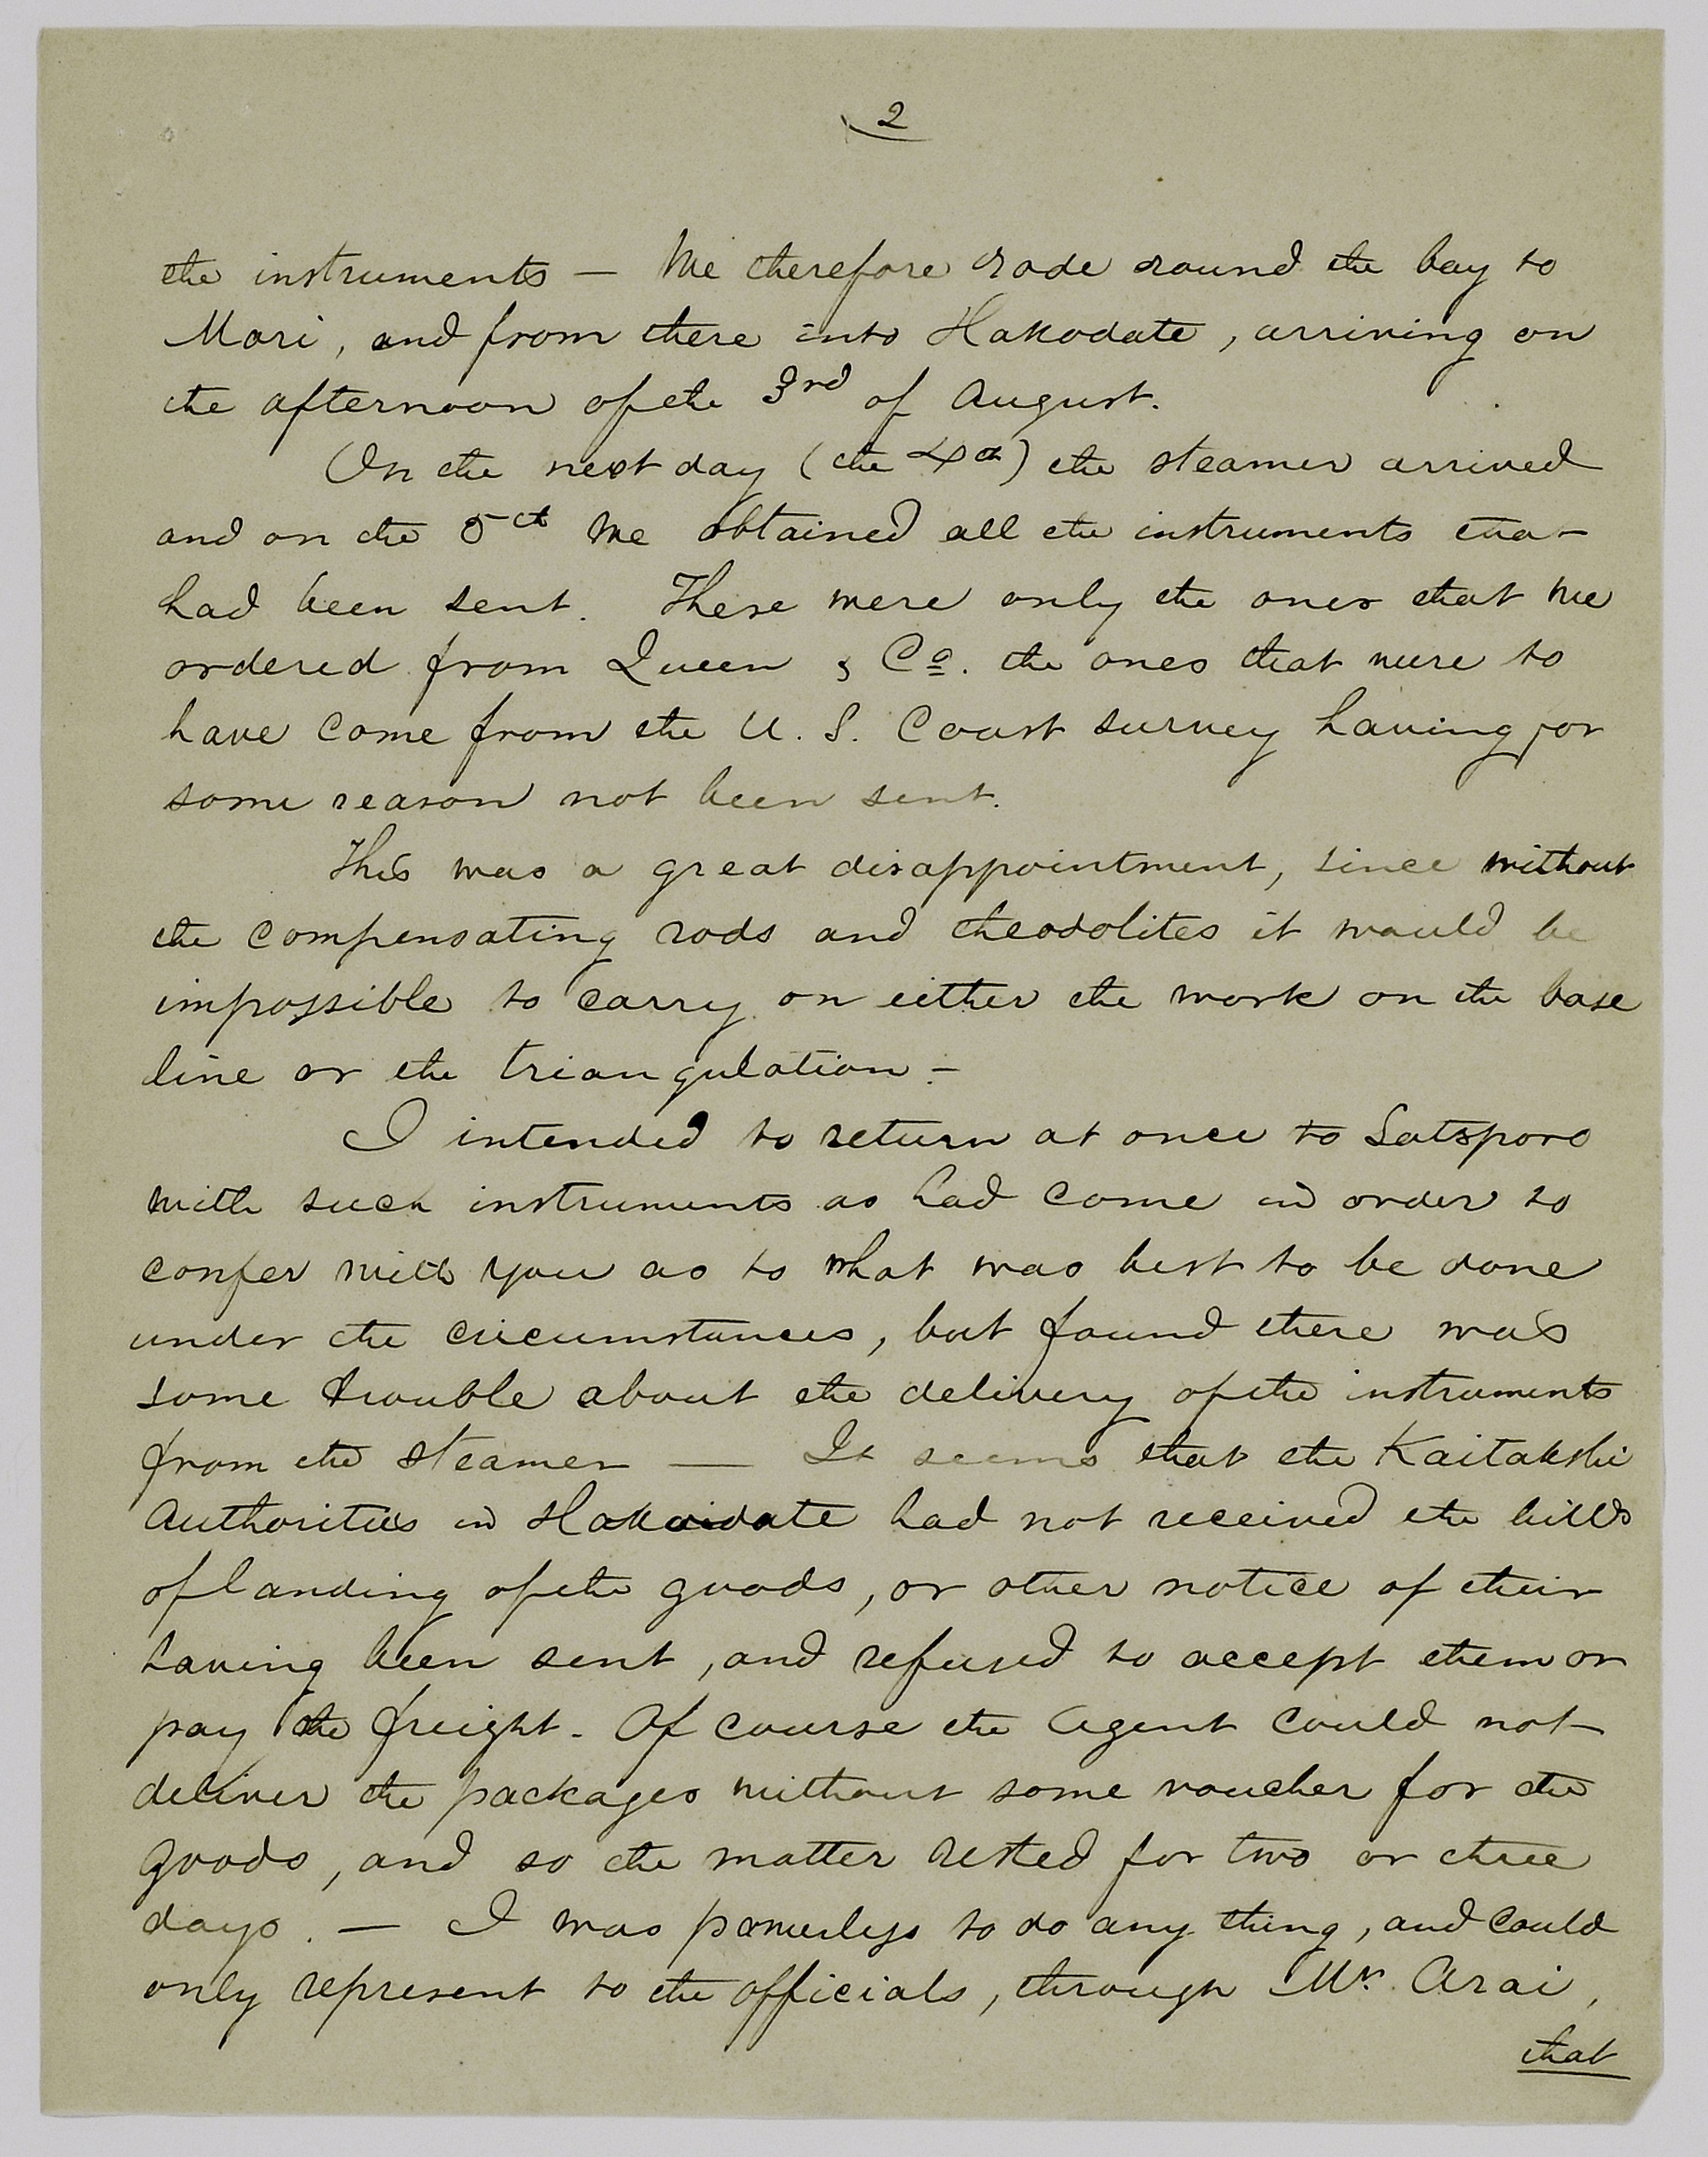 2
the instruments — We therefore rode round the bay to
Mori, and from there into Hakodate, arriving on
the afternoon of the 3rd of August.
On the next day (the 4th) the steamer arrived
and on the 5th we obtained all the instruments that
had been sent. These were only the ones that we
ordered from Queen & Co. the ones that were to
have come from the U. S. Coast survey having for
some reason not been sent.
This was a great disappointment, since without
the compensating rods and theodolites it would be
impossible to carry on either the work on the base
line or the triangulation –
I intended to return at once to Satsporo
with such instruments as had come in order to
confer with you as to what was best to be done
under the circumstances, but found there was
some trouble about the delivery of the instruments
from the steamer — It seems that the Kaitakshi
Authorities in Hakodate had not received the bills
of landing of the goods, or other notice of their
having been sent, and refused to accept them or
pay the freight. Of course the Agent could not
deliver the packages without some voucher for the
goods, and so the matter rested for two or three
days. — I was powerless to do any thing, and could
only represent to the officials, through Mr. Arai,
that